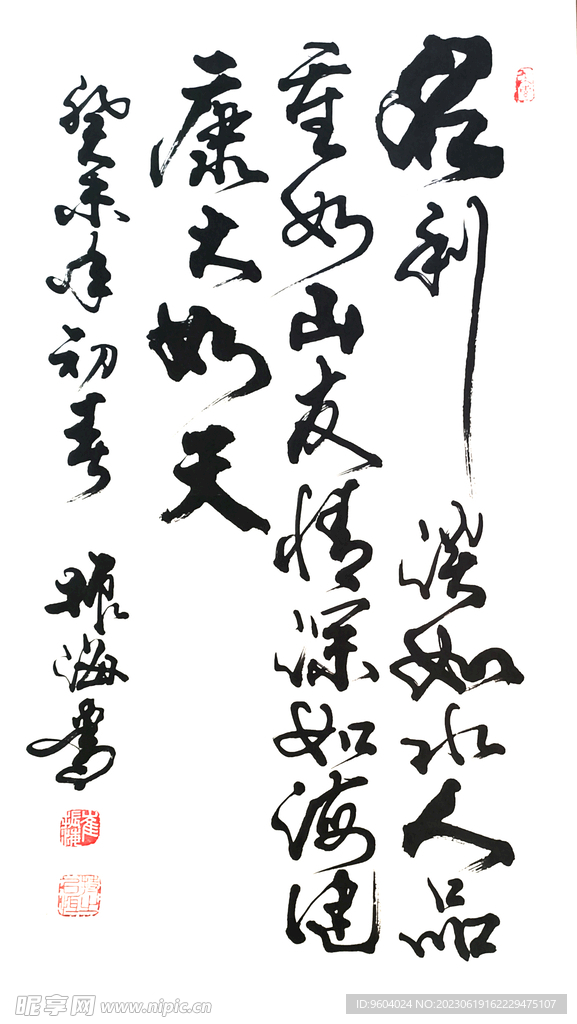 名利淡如水人品
重如山友情深如海健
康大如天
癸未年初春
振海書
昵享网 www.nipic.cn
ID:9604024 NO:20230619162229475107